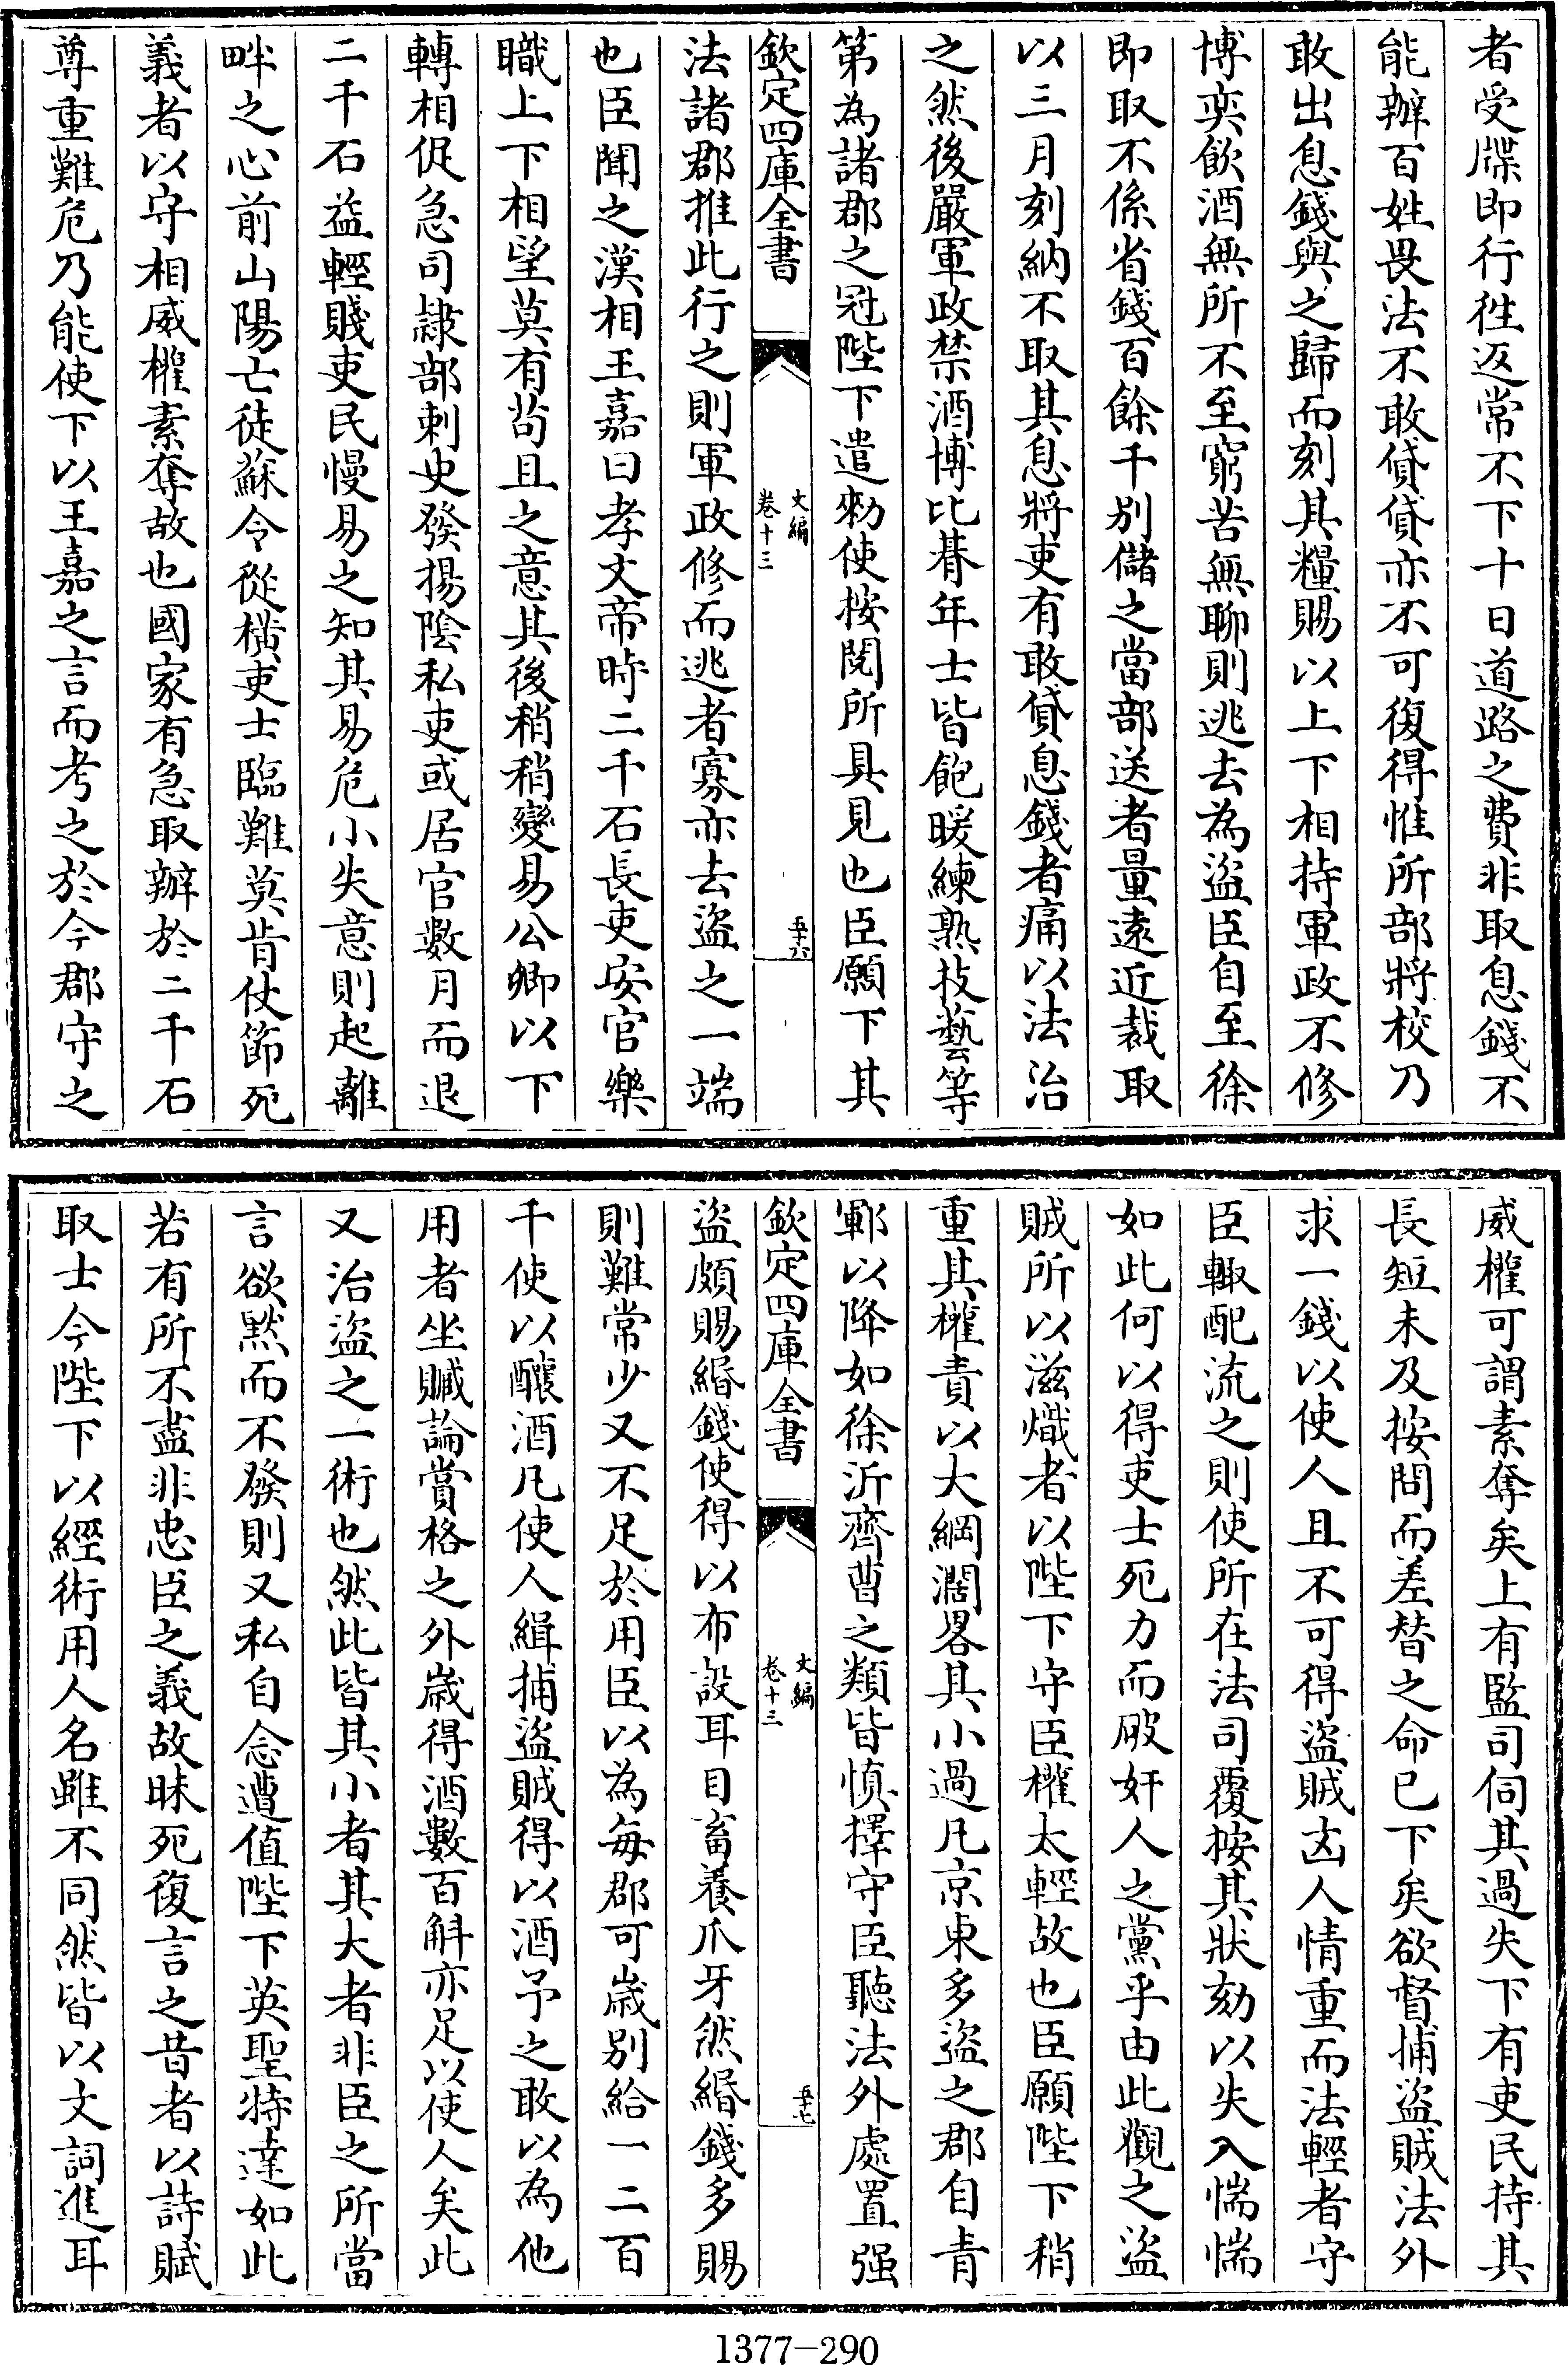 者受牒即行往返常不下十日道路之費非取息錢不
能辦百姓畏法不敢貸貸亦不可復得惟所部將校乃
敢出息錢與之歸而刻其糧賜以上下相持軍政不修
博奕飲酒無所不至窮苦無聊則逃去為盜臣自至徐
即取不係省錢百餘千別儲之當部送者量遠近裁取
以三月刻納不取其息將吏有敢貸息錢者痛以法治
之然後嚴軍政禁酒博比朞年士皆飽暖練熟技藝等
第為諸郡之冠陛下遣勑使按閱所具見也臣願下其
欽定四庫全書
文編
卷十三
五十六
法諸郡推此行之則軍政修而逃者寡亦去盜之一端
也臣聞之漢相王嘉曰孝文帝時二千石長吏安官樂
職上下相望莫有苟且之意其後稍稍變易公卿以下
轉相促急司隸部刺史發揚陰私吏或居官數月而退
二千石益輕賤吏民慢易之知其易危小失意則起離
畔之心前山陽亡徒蘇令從横吏士臨難莫肯仗節死
義者以守相威權素奪故也國家有急取辦於二千石
尊重難危乃能使下以王嘉之言而考之於今郡守之
威權可謂素奪矣上有監司伺其過失下有吏民持其
長短未及按問而差替之命已下矣欲督捕盜賊法外
求一錢以使人且不可得盜賊凶人情重而法輕者守
臣輙配流之則使所在法司覆按其狀劾以失入惴惴
如此何以得吏士死力而破奸人之黨乎由此觀之盜
賊所以滋熾者以陛下守臣權太輕故也臣願陛下稍
重其權責以大綱濶畧其小過凡京東多盜之郡自青
鄆以降如徐沂齊曹之類皆慎擇守臣聽法外處置强
欽定四庫全書
文編
卷十三
五十七
盜頗賜緡錢使得以布設耳目畜養爪牙然緡錢多賜
則難常少又不足於用臣以為每郡可歲別給一二百
千使以釀酒凡使人緝捕盜賊得以酒予之敢以為他
用者坐贓論賞格之外歲得酒數百斛亦足以使人矣此
又治盜之一術也然此皆其小者其大者非臣之所當
言欲黙而不發則又私自念遭值陛下英聖特達如此
若有所不盡非忠臣之義故昧死復言之昔者以詩賦
取士今陛下以經術用人名雖不同然皆以文詞進耳
1377-290